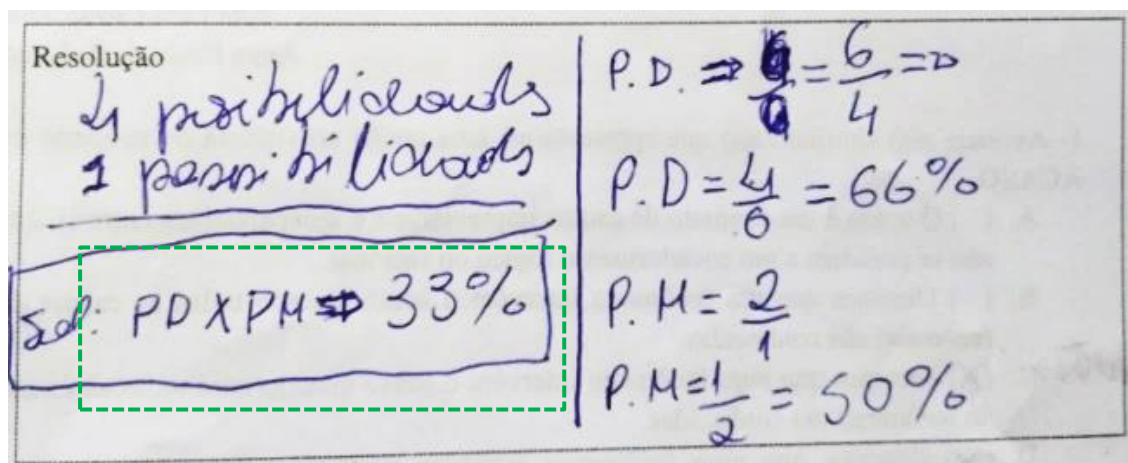 Resolução
4 possibilidads
1 possibilidads
Sol: PD X PM ⇒ 33%
P.D. ⇒ = 6/4 ⇒
P.D = 4/6 = 66%
P.M = 2/1
P.M = 1/2 = 50%